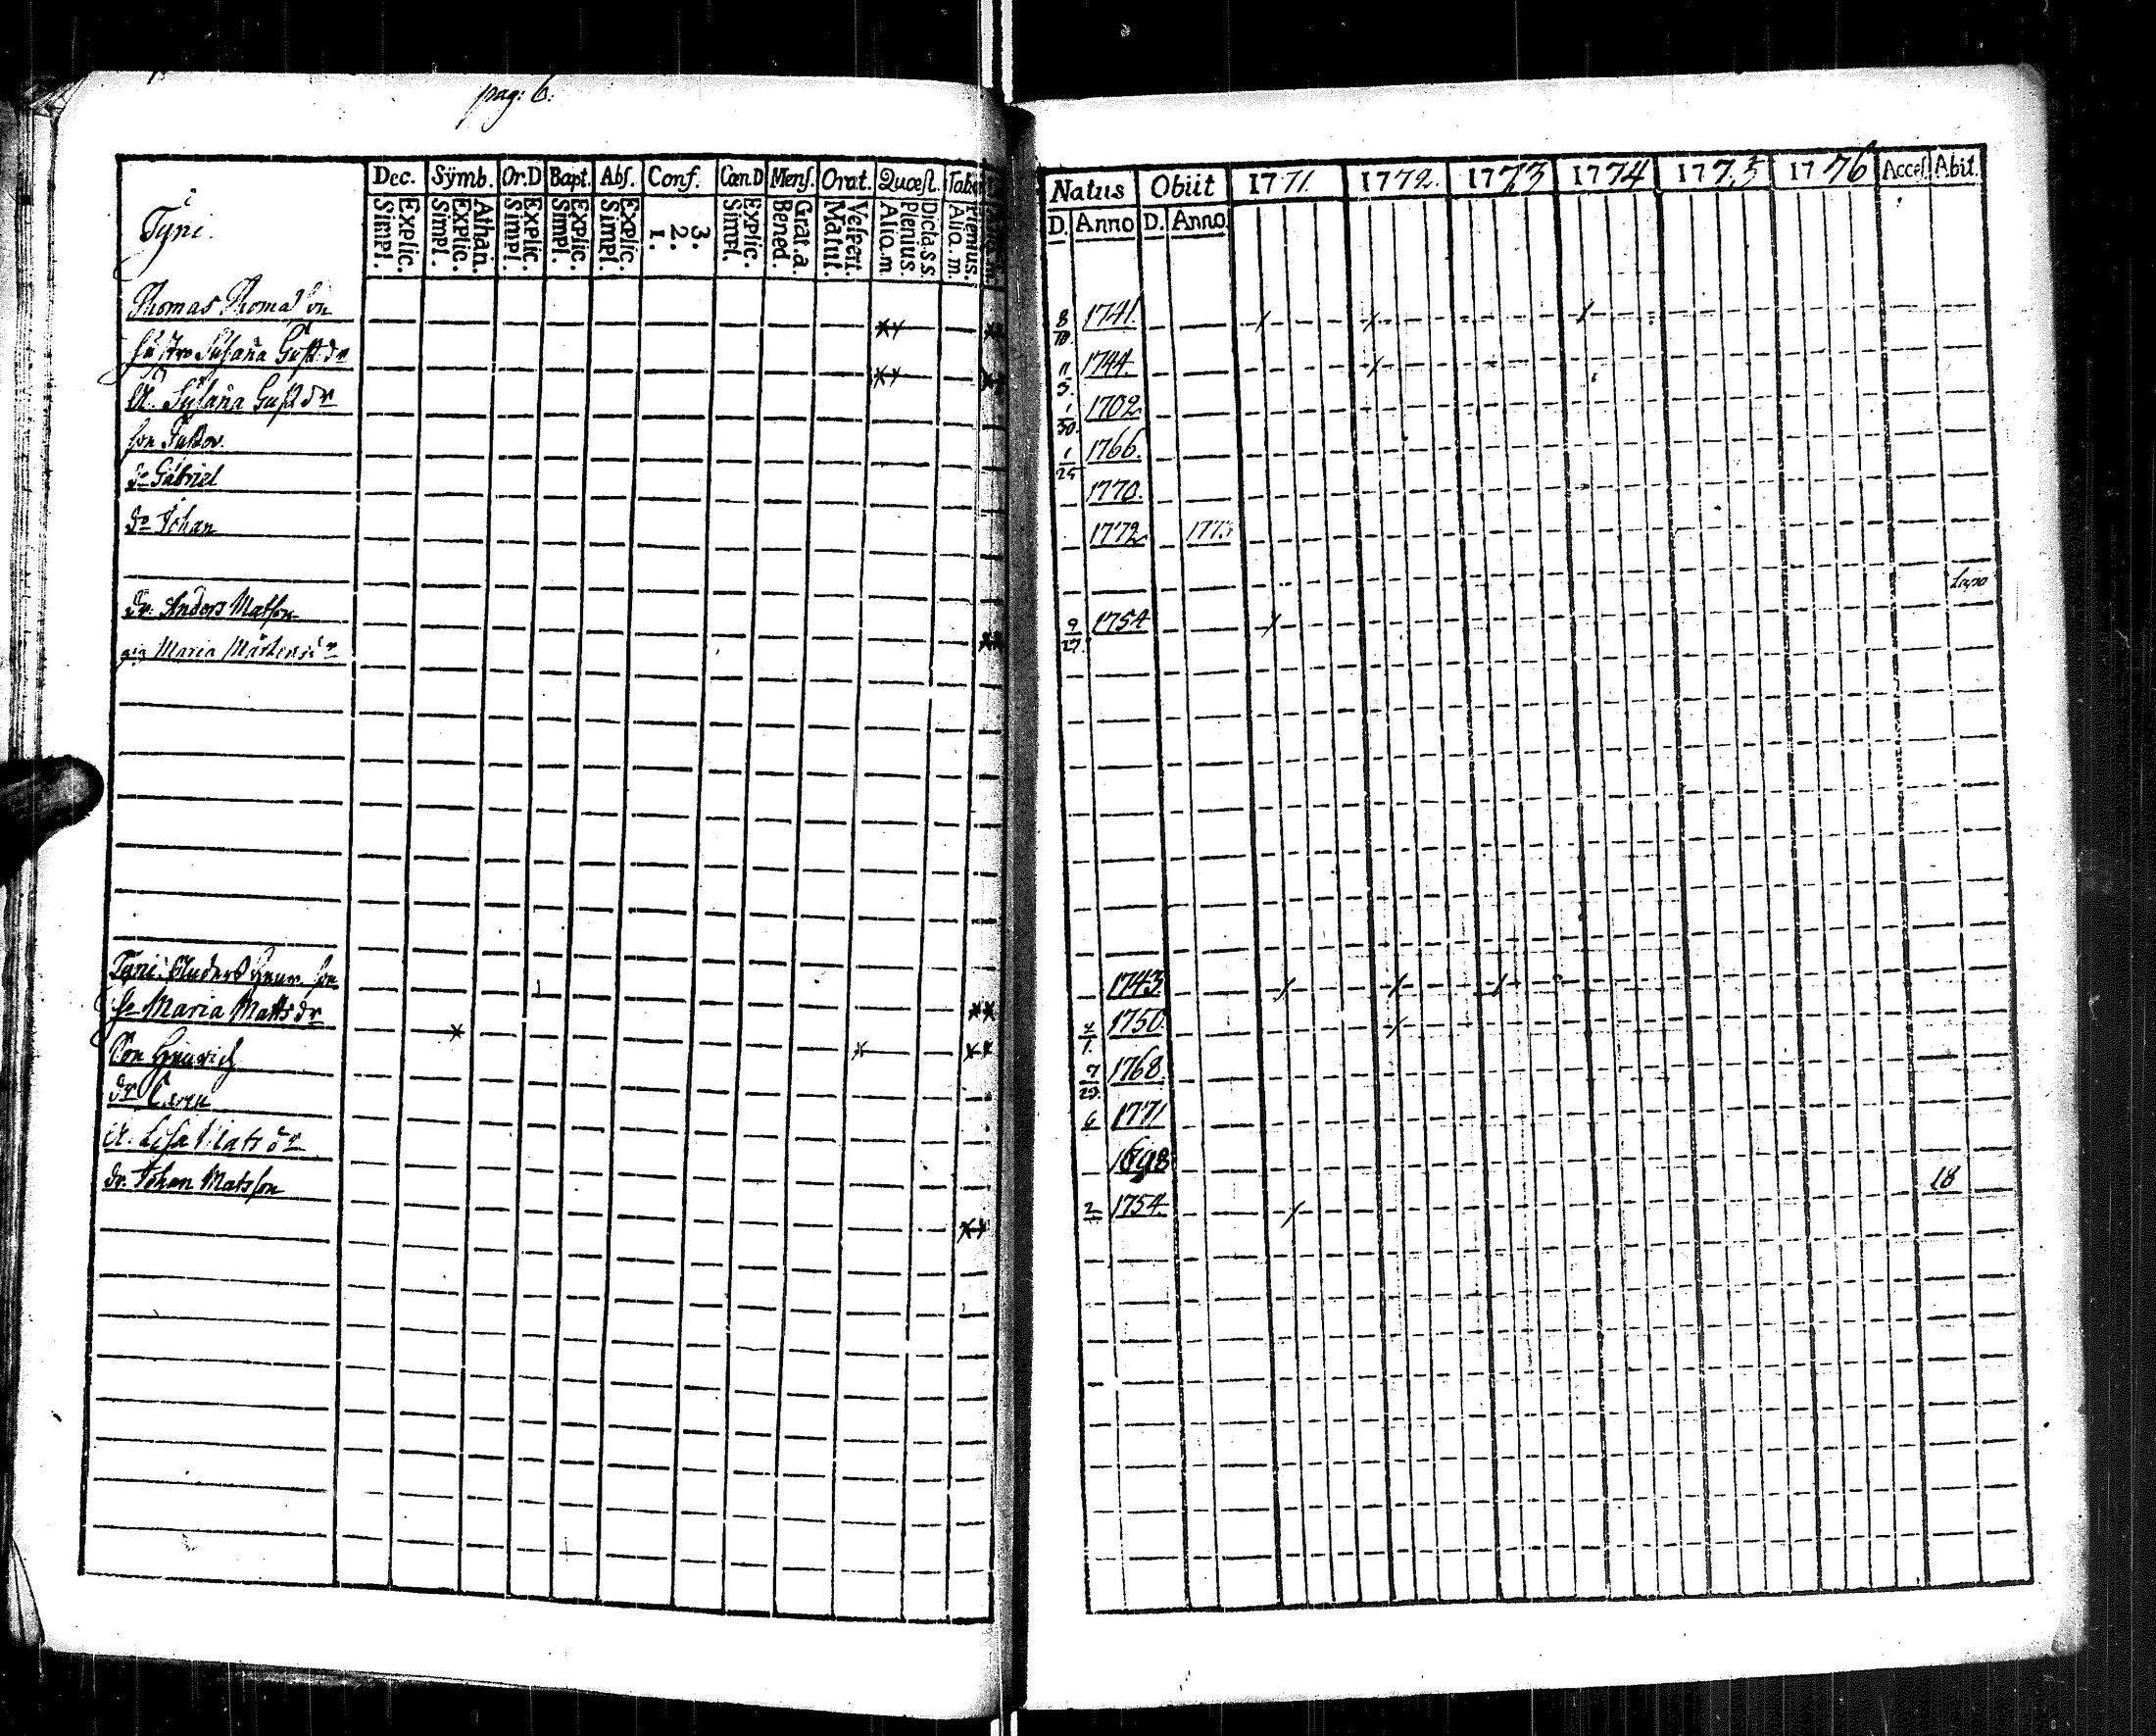 pag: 6.
Dec. Sÿmb. Or.D Bapt. Abſ. Conf. Cœn.D Menſ. Orat. Quæſt.
Explic. Simpl. Athan. Explic. Simpl. Explic. Simpl. Explic. Simpl. Explic. Simpl. 3. 2. 1. Explic. Simpl. Grat. a. Bened. Veſpert. Matut. Dicta.s.s. Plenius. Alio.m Plenius. Alio.m.
Tyni.
Thomas Thomasson
hustro Susana Gust.dr
E. Susana Gust dr
son Gustav.
do Gabriel
do Johan
dr. Anders Matsson
pig Maria Mårtensdr
Tyni. Anders Henr. son
h. Maria Matts dr
Son Henrich
dr Caren
E. Lisa Mats dr
dr. Johan Matsson
Natus Obiit 1771. 1772. 1773 1774 1775 1776 Acceſ. Abit.
D. Anno D. Anno
8/10. 1741.
11/5. 1744.
1/30. 1702
1/25 1766.
1770.
1772 1773
9/27. 1754
1743.
1750.
1768.
6 1771
1698
2 1754. 18